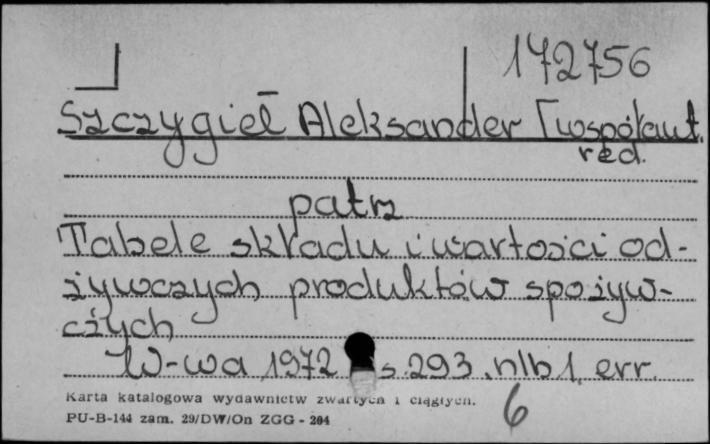 172756
Szczygieł Aleksander [współaut.
red.
patrz
Tabele składu i wartości od-
żywczych produktów spożyw-
czych
W-wa 1972 s. 293, nlb 1, err.
Karta katalogowa wydawnictw zwartych i ciągłych.
6
PU-B-144 zam. 29/DW/On ZGG - 204